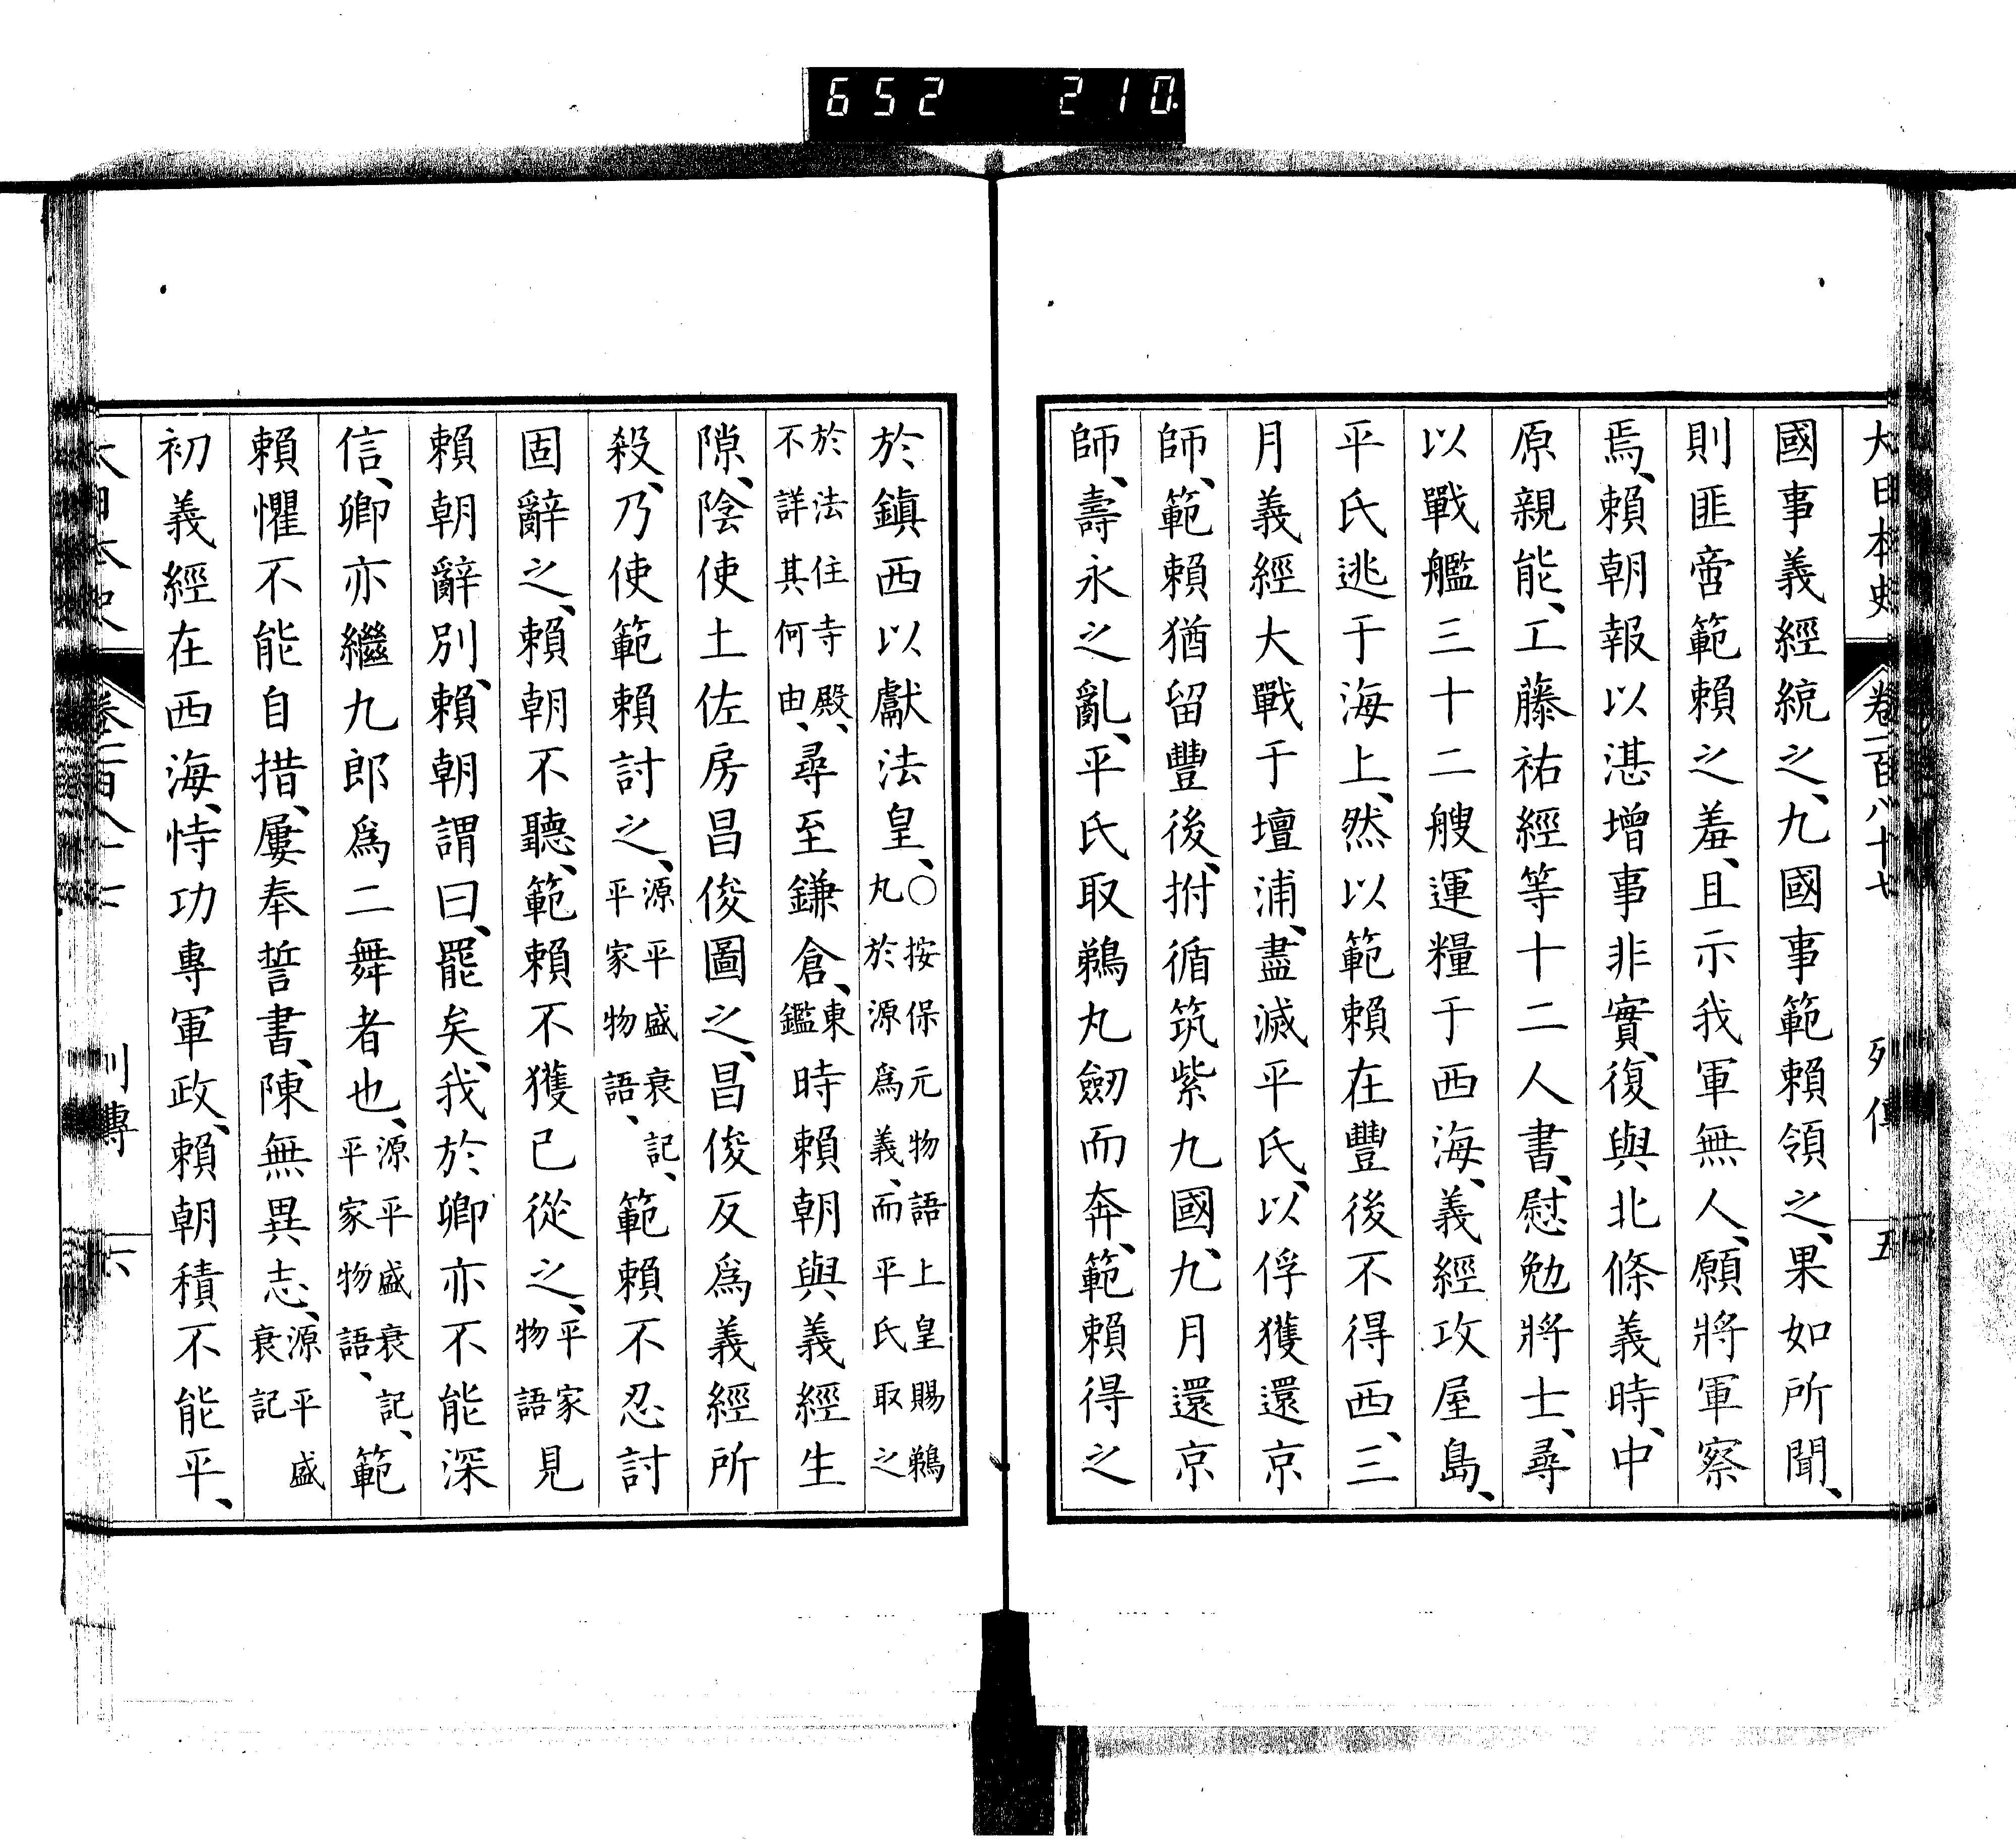 652 210.
大日本史 卷一百八十七 列傳 五
國事義經統之、九國事範賴領之、果如所聞、
則匪啻範賴之羞、且示我軍無人、願將軍察
焉、賴朝報以湛增事非實、復與北條義時、中
原親能、工藤祐經等十二人書、慰勉將士、尋
以戰艦三十二艘運糧于西海、義經攻屋島、
平氏逃于海上、然以範賴在豐後不得西、三
月義經大戰于壇浦、盡滅平氏、以俘獲還京
師、範賴猶留豐後、拊循筑紫九國、九月還京
師、壽永之亂、平氏取鵜丸劔而奔、範賴得之
於鎮西以獻法皇、○按保元物語上皇賜鵜丸於源爲義、而平氏取之
於法住寺殿、不詳其何由、尋至鎌倉、東鑑時賴朝與義經生
隙、陰使土佐房昌俊圖之、昌俊反爲義經所
殺、乃使範賴討之、源平盛衰記、平家物語、範賴不忍討
固辭之、賴朝不聽、範賴不獲已從之、平家物語見
賴朝辭別、賴朝謂曰、罷矣、我於卿亦不能深
信、卿亦繼九郎爲二舞者也、源平盛衰記、平家物語、範
賴懼不能自措、屢奉誓書、陳無異志、源平盛衰記
初義經在西海、恃功專軍政、賴朝積不能平、
大日本史 卷一百八十七 列傳 六